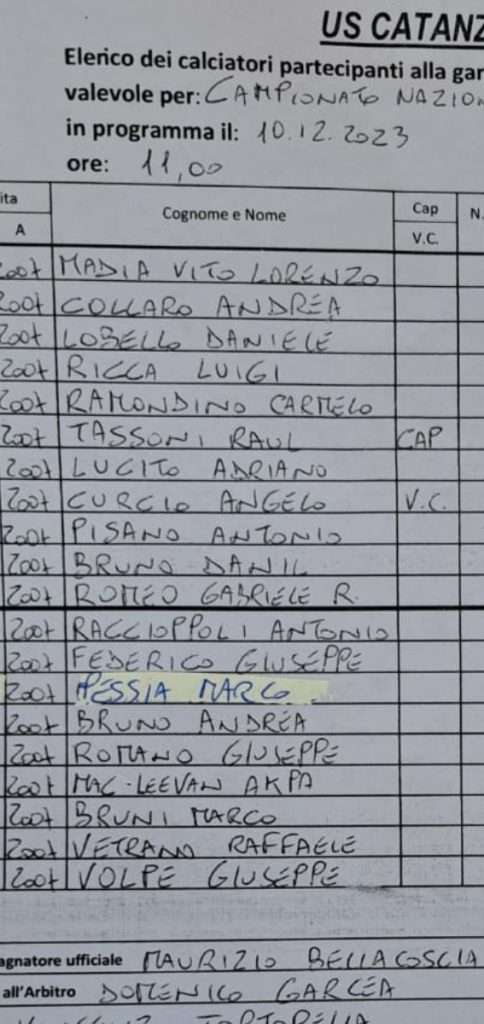 US CATANZ
Elenco dei calciatori partecipanti alla gar
valevole per: CAMPIONATO NAZION
in programma il: 10.12.2023
ore: 11,00
ita
A Cognome e Nome Cap N.
V.C.
2007 MADIA VITO LORENZO
2007 COLLARO ANDREA
2007 LOBELLO DANIELE
2007 RICCA LUIGI
2007 RAMONDINO CARMELO
2007 TASSONI RAUL CAP
2007 LUCITO ADRIANO
2007 CURCIO ANGELO V.C.
2007 PISANO ANTONIO
2007 BRUNO DANIL
2007 ROMEO GABRIELE R.
2007 RACCIOPPOLI ANTONIO
2007 FEDERICO GIUSEPPE
2007 MESSIA MARCO
2007 BRUNO ANDREA
2007 ROMANO GIUSEPPE
2007 MAC-LEEVAN AKPA
2007 BRUNI MARCO
2007 VETRANO RAFFAELE
2007 VOLPE GIUSEPPE
agnatore ufficiale MAURIZIO BELLACOSCIA
all'Arbitro DOMENICO GARCEA
TORTORELLA